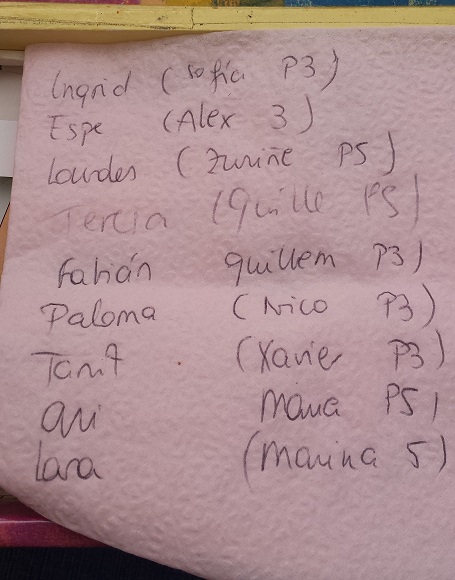 Ingrid (Sofía P3)
Espe (Alex 3)
Lourdes (Zuriñe P5)
Tercia (Guille P5)
Fabián guillem P3)
Paloma (Nico P3)
Tanit (Xavier P3)
P5)
Lara (Marina 5)